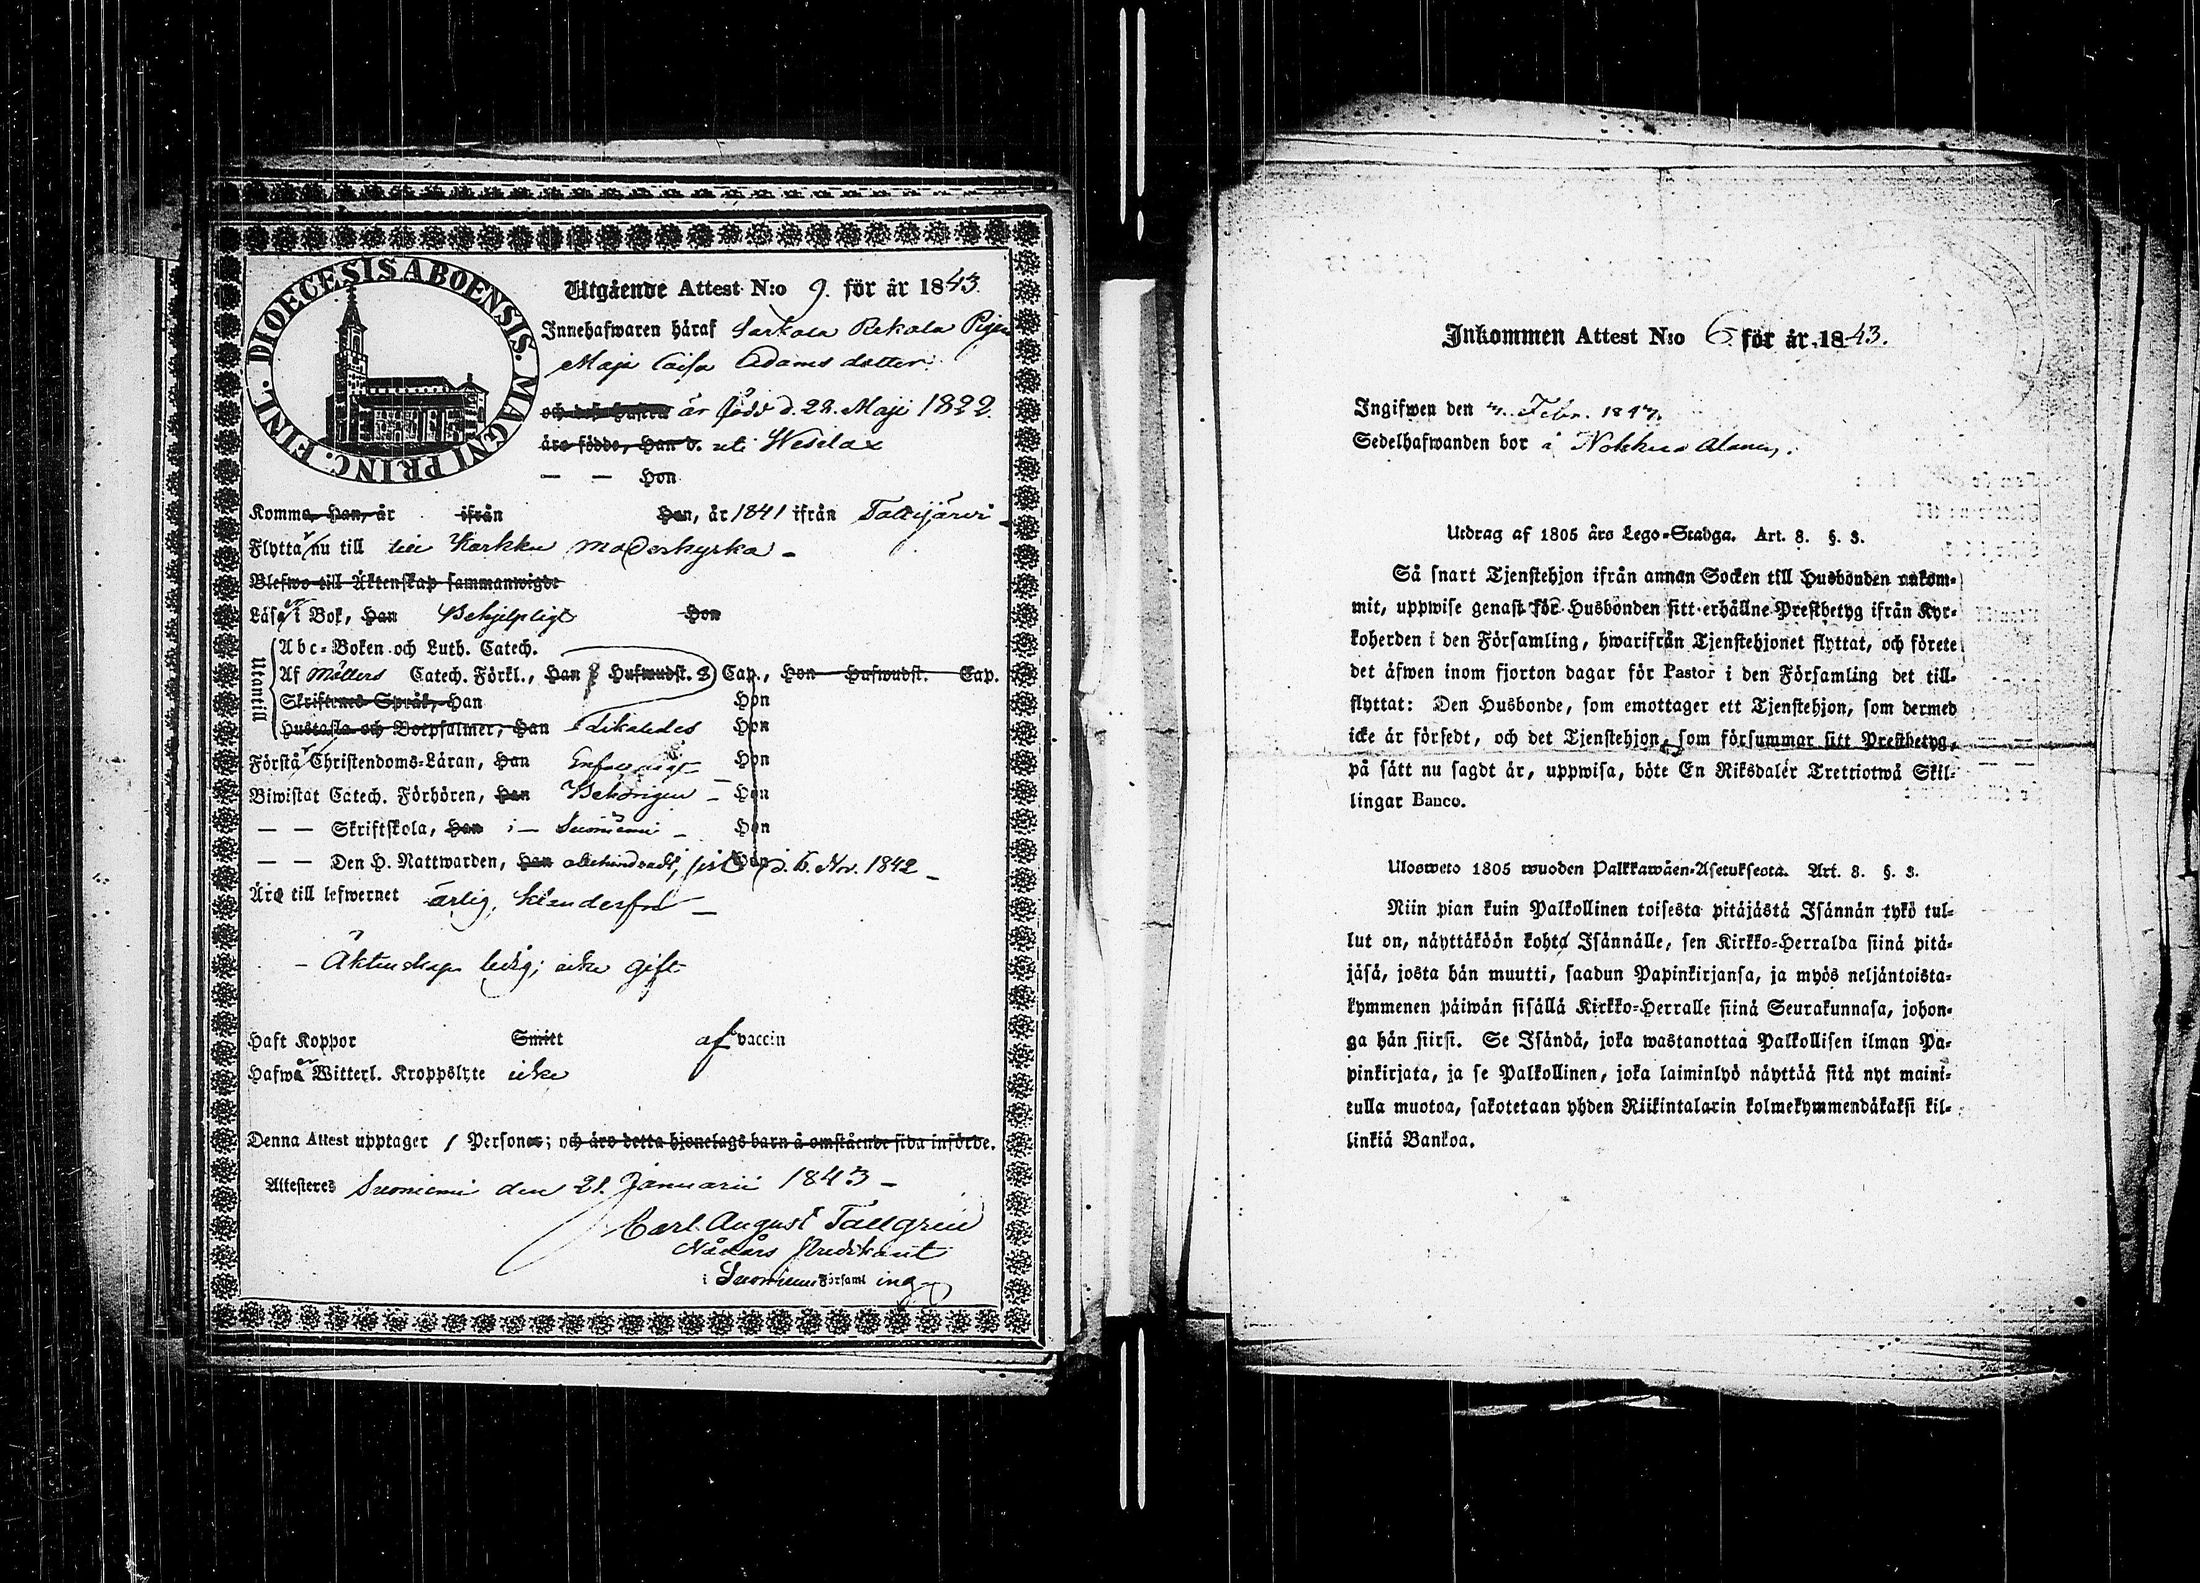 DIOECESIS ABOENSIS. MAGNI PRINC. FINL.
Utgående Attest N:o 9. för år 1843.
Innehafwaren häraf Sarkola Rekola Pigan
Maja Caisa Adams dotter
och dess hustru är född d. 22. Maji 1822.
äro födde, Han d. uti Wesilax
— — Hon
Komme, Han, år ifrån Hon, år 1841 ifrån Tottijärvi
Flyttar nu till till Karkku moderkyrka –
Blefwo till Äktenskap sammanwigde
Läser i Bok, Han Behjelpligt Hon
Utantill
Abc-Boken och Luth. Catech.
Af Möllers Catech. Förkl., Han Hufwudst. 8 Cap., Hon Hufwudst. Cap.
Skriftenes Språk, Han Hon
Hustafla och Botpsalmer, Han Likaledes Hon
Förstår Christendoms-Läran, Han Enfaldigt Hon
Biwistat Catech. Förhören, Han Behörigen – Hon
— — Skriftskola, Han i – Suoniemi – Hon
— — Den H. Nattwarden, Han obehindradt, sist Hon d. 6. Nov. 1842 –
Äro till lefwernet ärlig, klanderfri –
– Äktenskaps ledig; icke gift
Haft Koppor Smitt af vaccin
Hafwer Witterl. Kroppslyte icke
Denna Attest upptager 1 Personer; och äro detta hjonelags barn å omstående sida införde.
Attesteres Suoniemi den 21. Januarii 1843 –
Carl August Tallgren
Nådårs Predikant
i Suoniemi Församl ing
Inkommen Attest N:o 6 för år 1843.
Ingifwen den Febr. 1843.
Sedelhafwanden bor å Nokkua
Utdrag af 1805 års Lego-Stadga. Art. 8. §. 3.
Så snart Tjenstehjon ifrån annan Socken till Husbonden ankom-
mit, uppwise genast för Husbonden sitt erhållne Prestbetyg ifrån Kyr-
koherden i den Församling, hwarifrån Tjenstehjonet flyttat, och förete
det äfwen inom fjorton dagar för Pastor i den Församling det till-
flyttat: Den Husbonde, som emottager ett Tjenstehjon, som dermed
icke är försedt, och det Tjenstehjon, som försummar sitt Prestbetyg,
på sätt nu sagdt är, uppwisa, böte En Riksdaler Trettiotwå Skil-
lingar Banco.
Ulosweto 1805 wuoden Palkkawäen-Asetuksesta. Art. 8. §. 3.
Niin pian kuin Palkollinen toisesta pitäjästä Isännän tykö tul-
lut on, näyttäköön kohta Isännälle, sen Kirkko-Herralda siinä pitä-
jäsä, josta hän muutti, saadun Papinkirjansa, ja myös neljäntoista-
kymmenen päiwän sisällä Kirkko-Herralle siinä Seurakunnasa, johon-
ga hän siirsi. Se Isändä, joka wastanottaa Palkollisen ilman Pa-
pinkirjata, ja se Palkollinen, joka laiminlyö näyttää sitä nyt maini-
tulla muotoa, sakotetaan yhden Riikintalarin kolmekymmendäkaksi kil-
linkiä Bankoa.